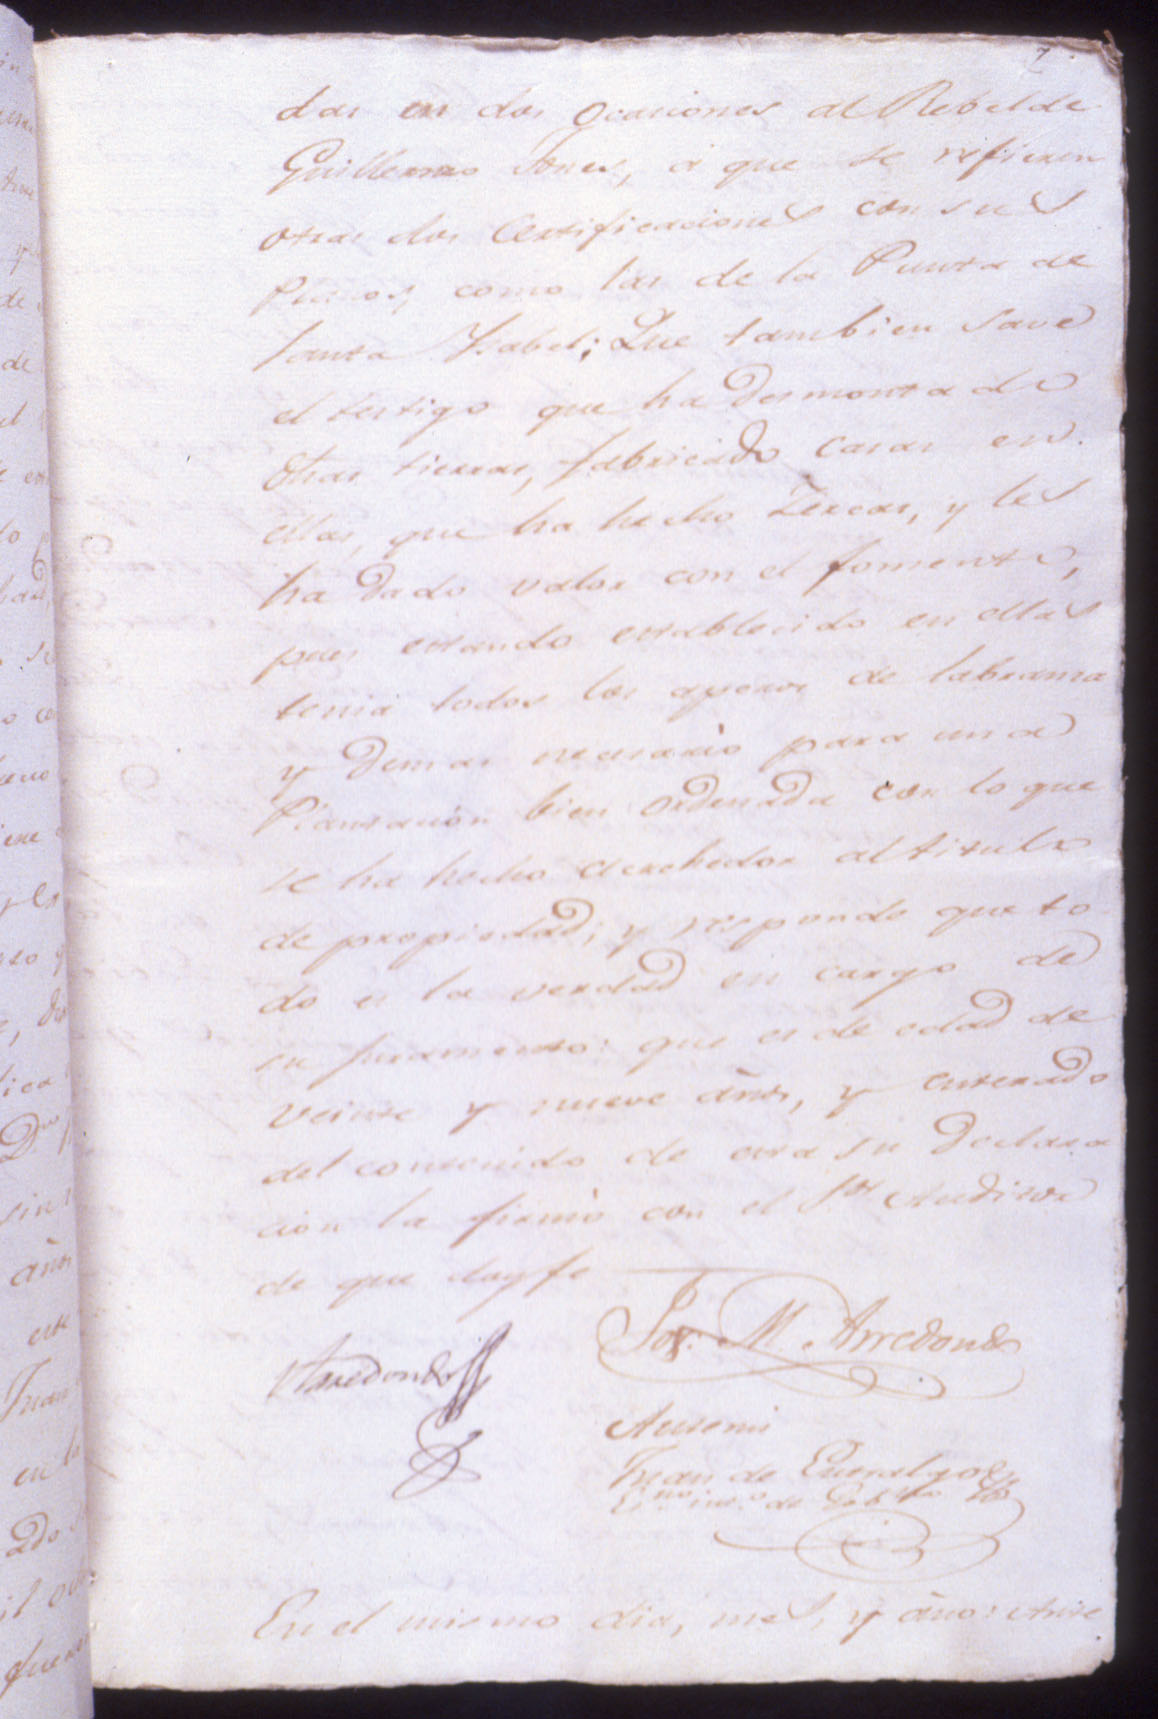 7
das en dos Ocaciones al Rebelde
Guillermo Jones, á que se refieren
otras dos Certificaciones con sus
Planos, como las de la Punta de
Santa Ysabel; Que tambien save
el testigo que ha Desmontado
otras tierras, fabricado casas en
ellas, que ha hecho Zercas, y les
ha dado valor con el fomento,
pues estando establecido en ellas
tenia todos los aperos de labranza
y Demas necesario para una
Plantacion bien Ordenada con lo que
se ha hecho acrehedor al titulo
de propiedad; y responde que to
do es la verdad en cargo de
su juramento: que es de edad de
veinte y nueve años, y enterado
del contenido de esta su Declara
cion la firmó con el S.or Auditor
de que doy fe
Jos. M. Arredondo
Arredondo
Antemi
Juan de Entralgo
Es.no int.o de Gob.no
En el mismo dia, mes, y año: Ante